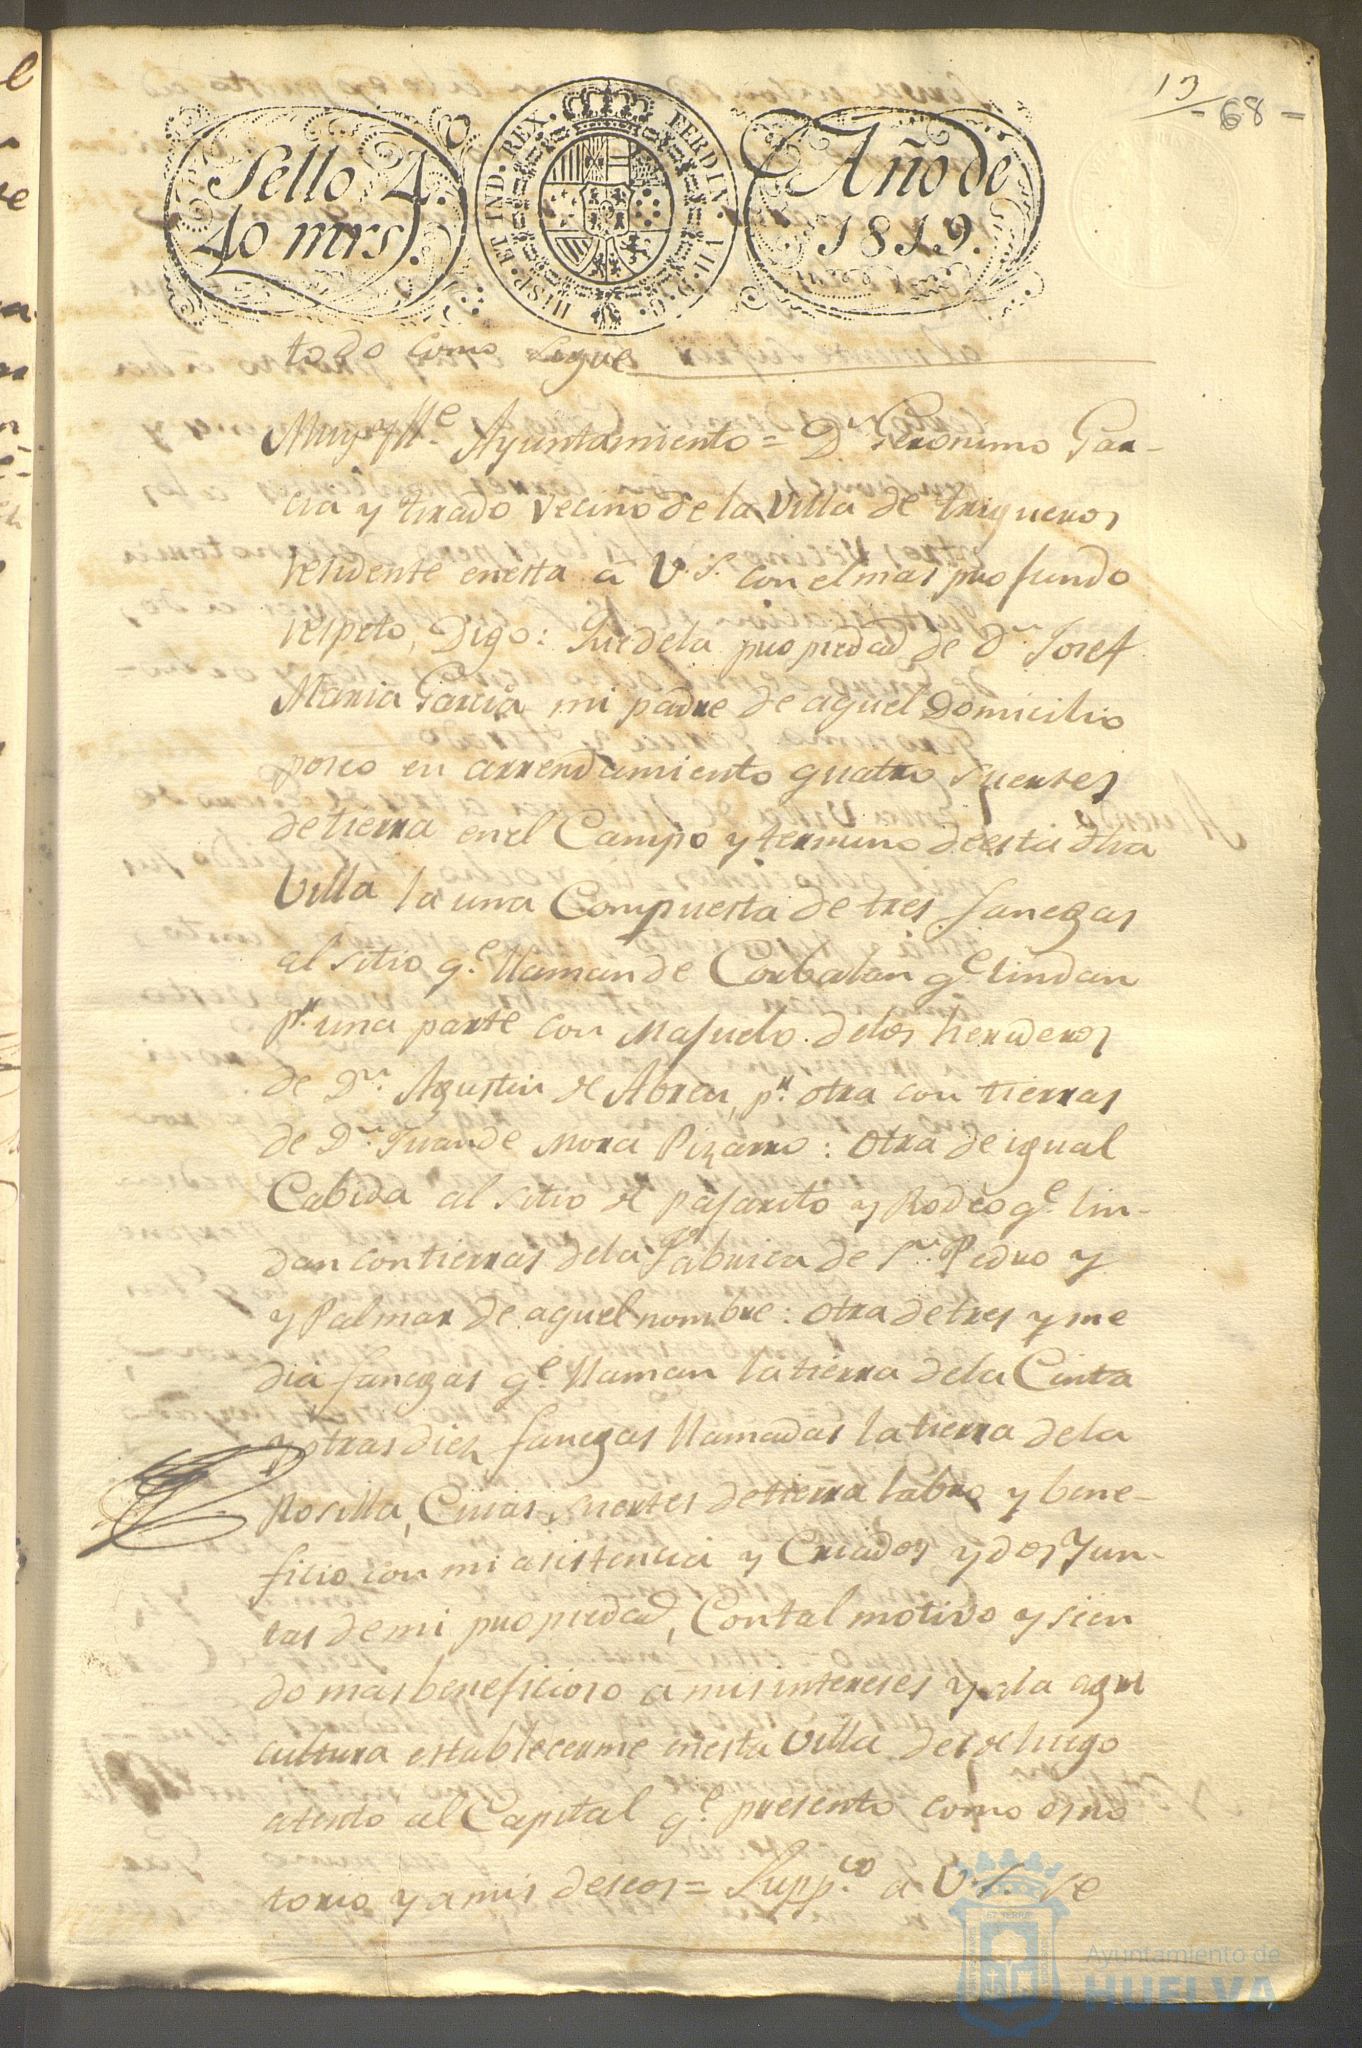 13
68
Sello 4.º
40 mrs.
HISP. ET IND. REX. FERDIN. VII. D. G.
Año de
1819.
todo como sigue
Muy Ylle. Ayuntamiento = Dn. Geronimo Gar-
cia y tirado vecino de la Villa de trigueros
residente enesta a V.S. con el mas profundo
respeto, Digo: Que dela propiedad de Dn. Josef
Maria Garcia mi padre de aquel Domicilio
poseo en arrendamiento quatro suertes
de tierra enel Campo y termino deesta dha
Villa la una Compuesta de tres fanegas
al sitio qe. llaman de Corbalan qe. lindan
pr. una parte con Majuelo delos herederos
de Dn. Agustin de Abreu, pr. otra con tierras
de Dn. Juan de Mora Pizarro: otra de igual
Cabida al sitio de pajarito y Rodeo qe. lin-
dan con tierras dela Fabrica de Sn. Pedro y
y Palmar de aquel nombre: otra de tres y me
dia fanegas qe. llaman la tierra dela Cinta
y otras diez fanegas llamadas la tierra dela
Rosilla, Cuias suertes de tierra labro y bene-
ficio con mi asistencia y Criados y dos Yun-
tas de mi propiedad, Contal motivo y sien
do mas beneficioso a mis intereses y ala agri
cultura establecerme enesta Villa desde luego
atento al Capital qe. presento como es no
torio y a mis deseos = Suppco. a V.S. se
Ayuntamiento de
HUELVA